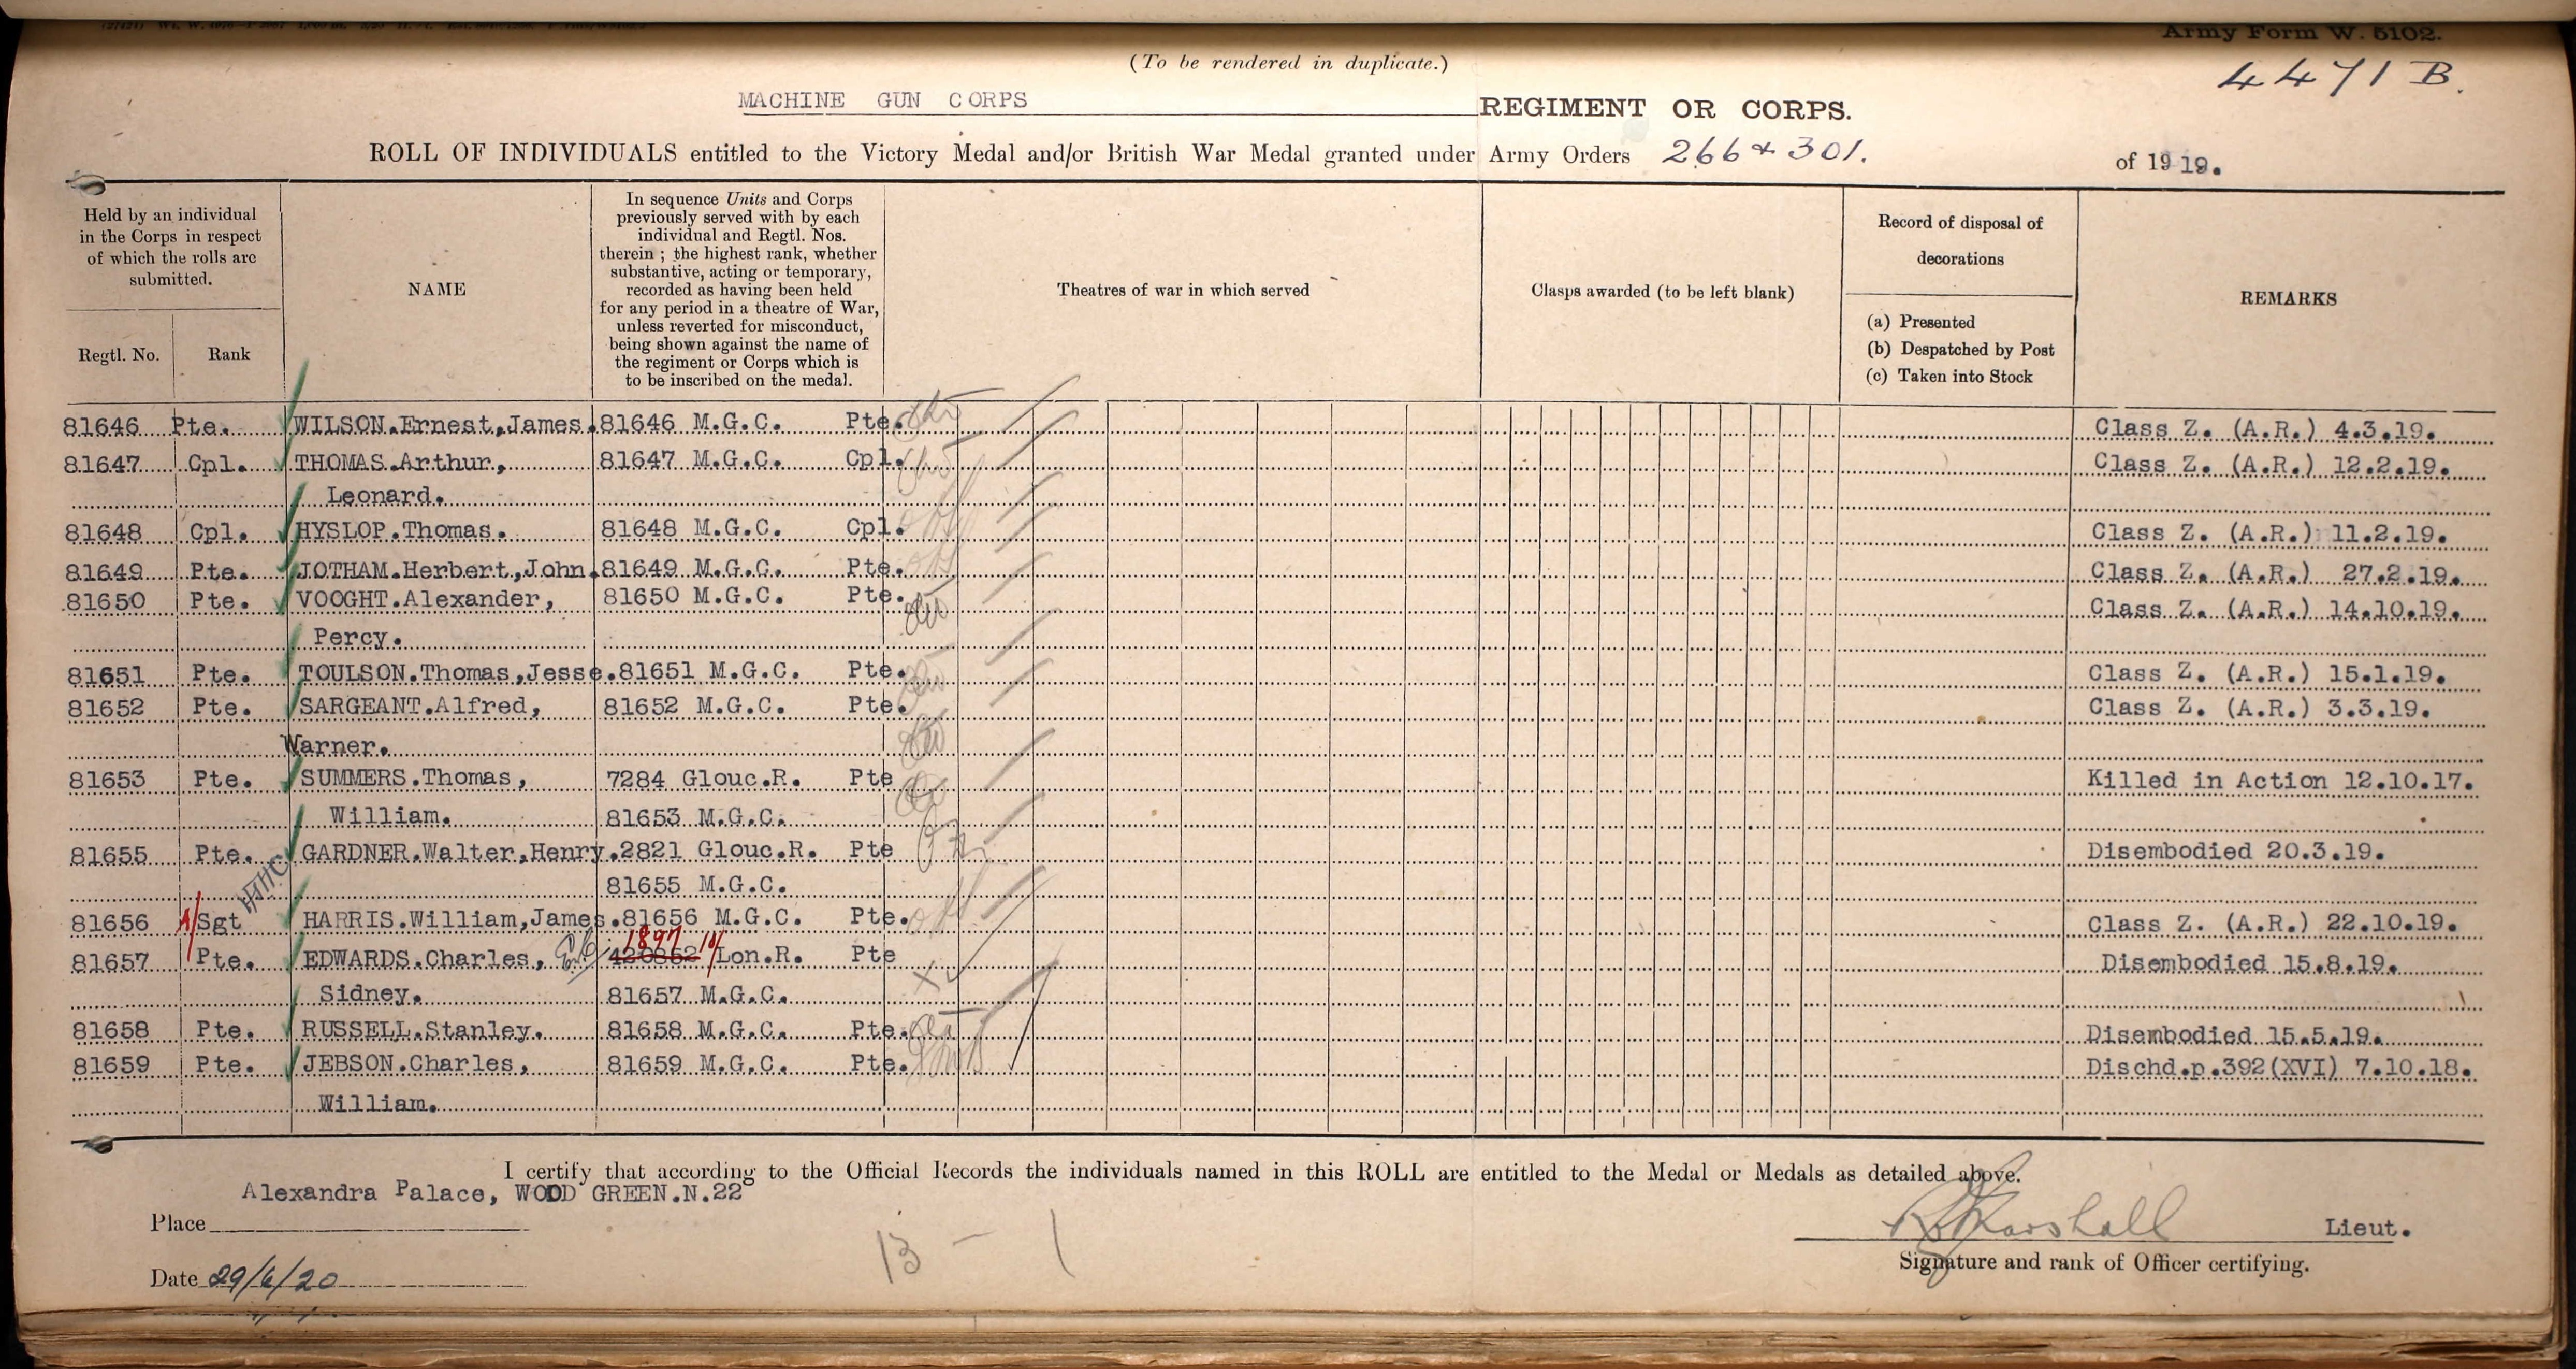 Army Form W. 5102.
(To be rendered in duplicate.)
4471 B.
MACHINE GUN CORPS REGIMENT OR CORPS.
ROLL OF INDIVIDUALS entitled to the Victory Medal and/or British War Medal granted under Army Orders 266 & 301. of 1919.
Held by an individual in the Corps in respect of which the rolls are submitted.
Regtl. No.
Rank
NAME
In sequence Units and Corps
previously served with by each
individual and Regtl. Nos.
therein ; the highest rank, whether
substantive, acting or temporary,
recorded as having been held
for any period in a theatre of War,
unless reverted for misconduct,
being shown against the name of
the regiment or Corps which is
to be inscribed on the medal.
Theatres of war in which served
Clasps awarded (to be left blank)
Record of disposal of
decorations
(a) Presented
(b) Despatched by Post
(c) Taken into Stock
REMARKS
81646 Pte. WILSON.Ernest,James. 81646 M.G.C. Pte. Class Z. (A.R.) 4.3.19.
81647 Cpl. THOMAS.Arthur, 81647 M.G.C. Cpl. Class Z. (A.R.) 12.2.19.
Leonard.
81648 Cpl. HYSLOP.Thomas. 81648 M.G.C. Cpl. Class Z. (A.R.) 11.2.19.
81649 Pte. JOTHAM.Herbert,John. 81649 M.G.C. Pte. Class Z. (A.R.) 27.2.19.
81650 Pte. VOOGHT.Alexander, 81650 M.G.C. Pte. Class Z. (A.R.) 14.10.19.
Percy.
81651 Pte. TOULSON.Thomas,Jesse. 81651 M.G.C. Pte. Class Z. (A.R.) 15.1.19.
81652 Pte. SARGEANT.Alfred, 81652 M.G.C. Pte. Class Z. (A.R.) 3.3.19.
Warner.
81653 Pte. SUMMERS.Thomas, 7284 Glouc.R. Pte Killed in Action 12.10.17.
William. 81653 M.G.C.
81655 Pte. GARDNER.Walter,Henry. 2821 Glouc.R. Pte Disembodied 20.3.19.
81655 M.G.C.
81656 A/Sgt HARRIS.William,James. 81656 M.G.C. Pte. Class Z. (A.R.) 22.10.19.
81657 Pte. EDWARDS.Charles, 1897 10/ Lon.R. Pte Disembodied 15.8.19.
Sidney. 81657 M.G.C.
81658 Pte. RUSSELL.Stanley. 81658 M.G.C. Pte. Disembodied 15.5.19.
81659 Pte. JEBSON.Charles, 81659 M.G.C. Pte. Dischd.p.392(XVI) 7.10.18.
William.
I certify that according to the Official Records the individuals named in this ROLL are entitled to the Medal or Medals as detailed above.
Alexandra Palace, WOOD GREEN.N.22
Place
Marshall Lieut.
13 - 1
Signature and rank of Officer certifying.
Date 29/6/20